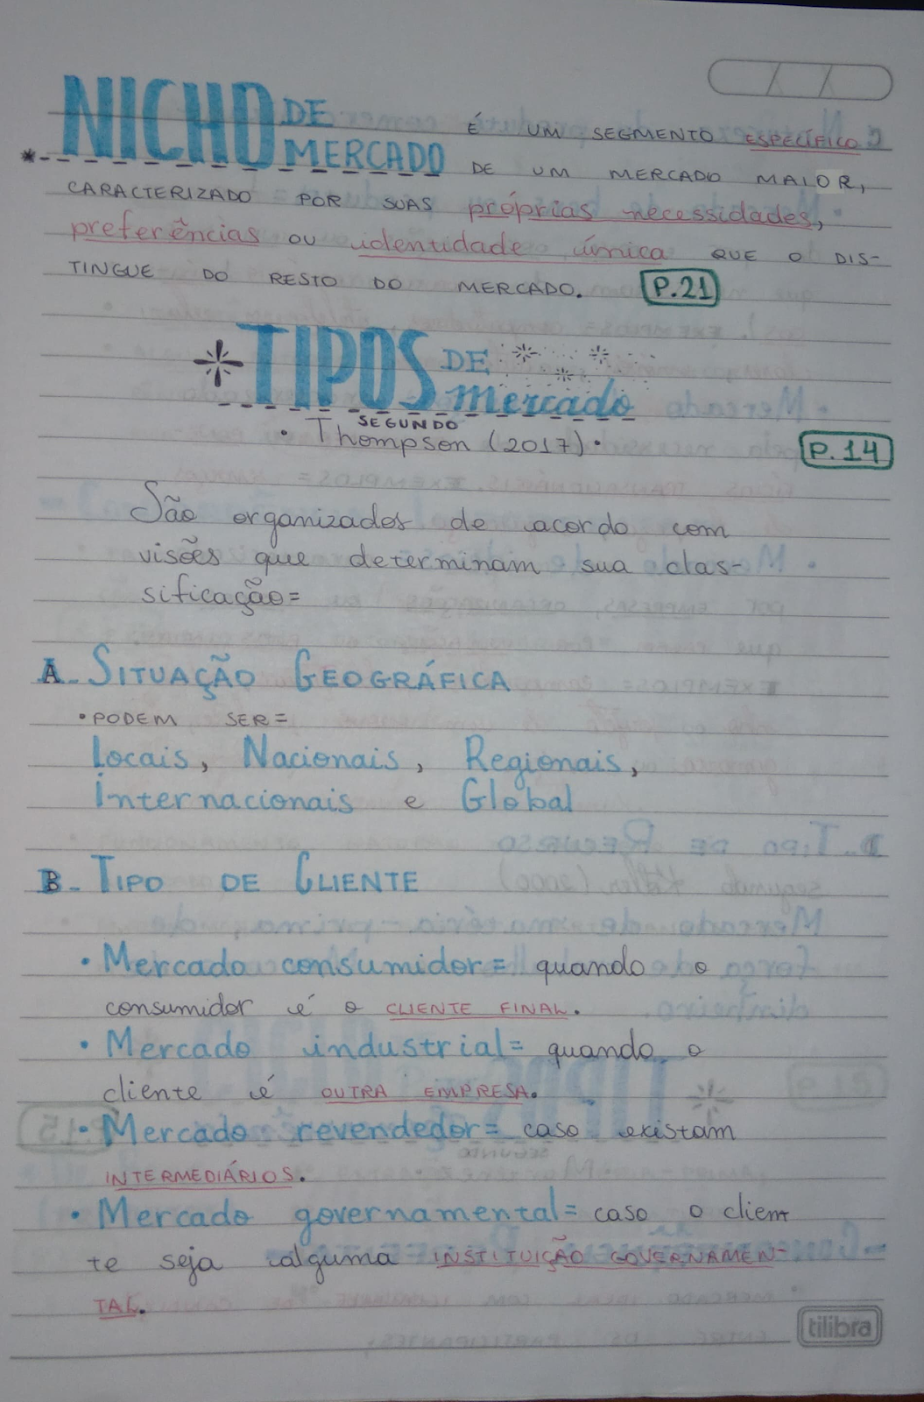 NICHO DE MERCADO É UM SEGMENTO ESPECÍFICO
DE UM MERCADO MAIOR,
CARACTERIZADO POR SUAS próprias necessidades,
preferências ou identidade única QUE O DIS-
TINGUE DO RESTO DO MERCADO. P.21
TIPOS DE mercado
SEGUNDO
• Thompson (2017).
P.14
São organizados de acordo com
visões que determinam sua clas-
sificação=
A- SITUAÇÃO GEOGRÁFICA
• PODEM SER=
Locais, Nacionais, Regionais,
Internacionais e Global
B- TIPO DE CLIENTE
• Mercado consumidor= quando o
consumidor é o CLIENTE FINAL.
• Mercado industrial= quando o
cliente é OUTRA EMPRESA.
• Mercado revendedor= caso existam
INTERMEDIÁRIOS.
• Mercado governamental= caso o clien
te seja alguma INSTITUIÇÃO GOVERNAMEN-
TAL.
tilibra